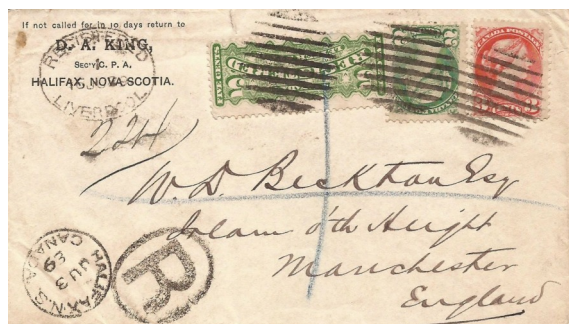 If not called for in 10 days return to
D. A. KING,
SEC'Y C. P. A.
HALIFAX, NOVA SCOTIA.
REGISTERED
LIVERPOOL
FIVE CENTS
CANADA POSTAGE
224
W. D. Beckton Esq
Irlam o'th Height
Manchester
England
R
HALIFAX, N.S.
JU 3
93
CANADA